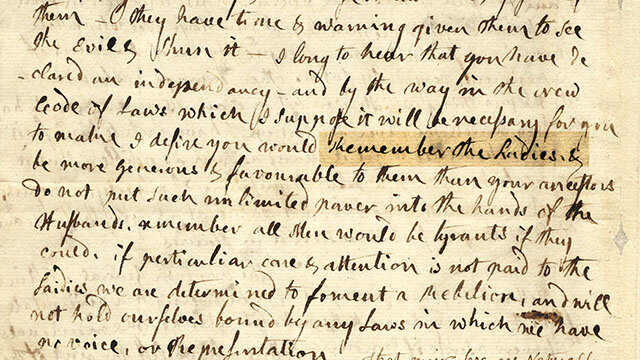 them - they have time & warning given them to see
the Evil & shun it - I long to hear that you have de
-clared an independancy - and by the way in the new
Code of Laws which I suppose it will be necessary for you
to make I desire you would Remember the Ladies, &
be more generous & favourable to them than your ancestors
do not put such unlimited power into the hands of the
Husbands. remember all Men would be tyrants if they
could. if perticuliar care & attention is not paid to the
Ladies we are determined to foment a Rebelion, and will
not hold ourselves bound by any Laws in which we have
no voice, or Representation
that your Sex are Naturally